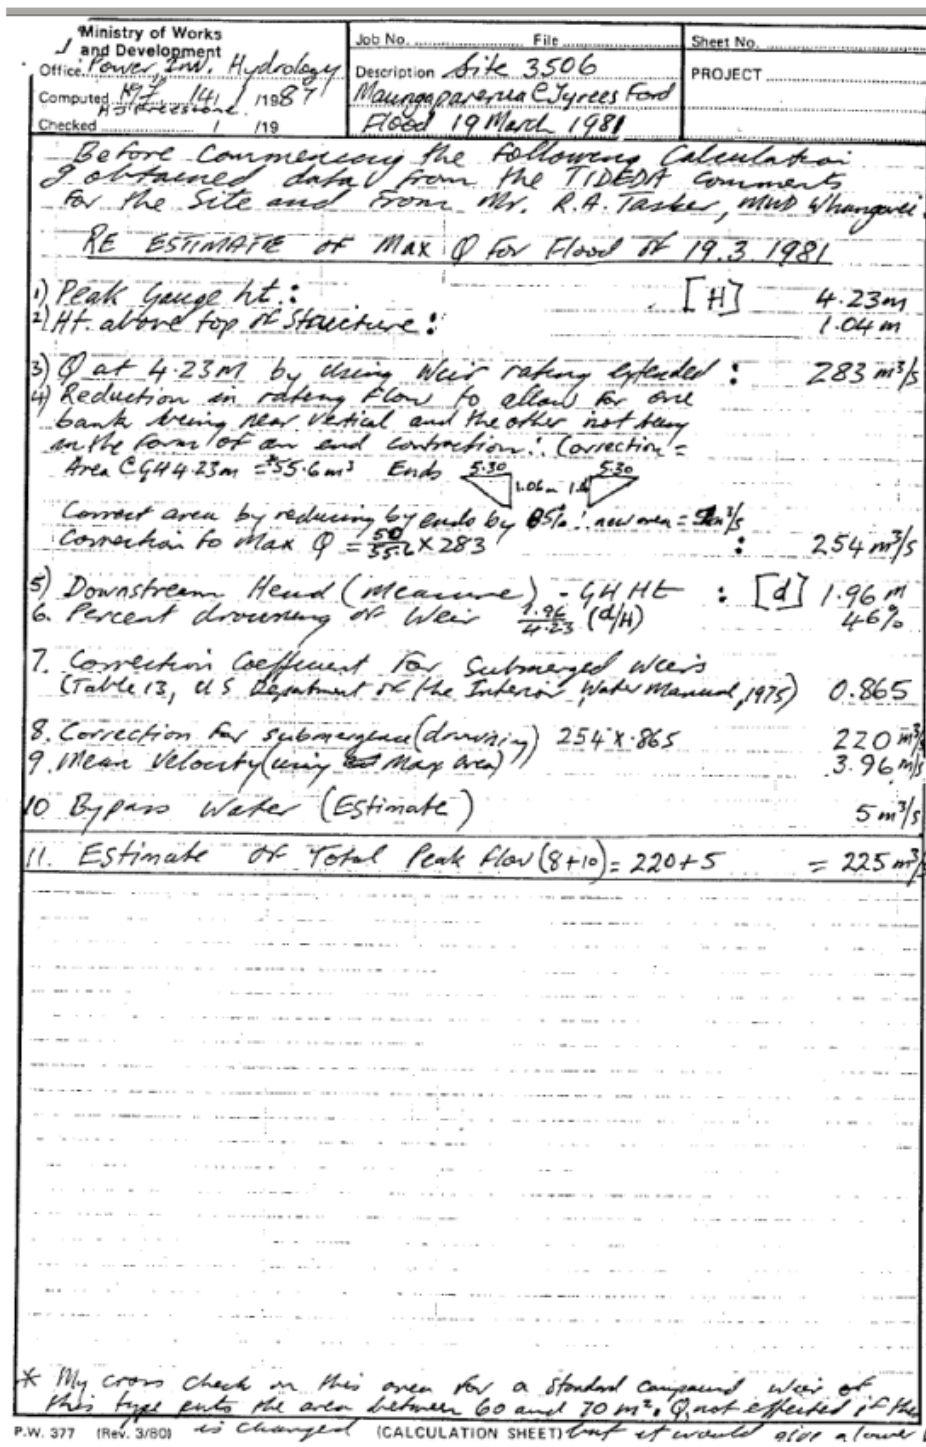 Ministry of Works
and Development
Office Power Inv. Hydrology
Computed 14/ 1 /1987
H J Freestone
Checked / /19
Job No. File
Description Site 3506
Maungaparerua @ Tyrees Ford
Flood 19 March 1981
Sheet No.
PROJECT
Before Commencing the following Calculation
I obtained data from the TIDEDA comments
for the Site and from Mr. R.A. Tasker, MWD Whangarei.
RE ESTIMATE of Max Q for Flood of 19.3.1981
1) Peak Gauge ht.: [H] 4.23m
2) Ht. above top of Structure: 1.04m
3) Q at 4.23m by using weir rating extended : 283 m³/s
4) Reduction in rating flow to allow for one
bank being near vertical and the other not being
in the form of an end contraction: Correction =
Area @ GH 4.23m = *55.6m² Ends 5.30 1.06m 5.30
Correct area by reducing by ends by : new area =
Correction to Max Q = 50/55.6 X 283 : 254 m³/s
5) Downstream Head (measure) - GH Ht : [d] 1.96 m
6. Percent drowning of Weir 1.96/4.23 (d/H) 46%
7. Correction Coefficient for Submerged Weirs
(Table 13, US Department of the Interior, Water Manual, 1975) 0.865
8. Correction for submergence (drowning) 254 X .865 220 m³/s
9. Mean Velocity (using Max area) 3.96 m/s
10 Bypass Water (Estimate) 5 m³/s
11. Estimate of Total Peak flow (8+10) = 220+5 = 225 m³/s
* My cross check on this area for a standard compound weir of
this type puts the area between 60 and 70 m². Q not effected if this
is changed but it would give a lower
P.W. 377 (Rev. 3/80) (CALCULATION SHEET)